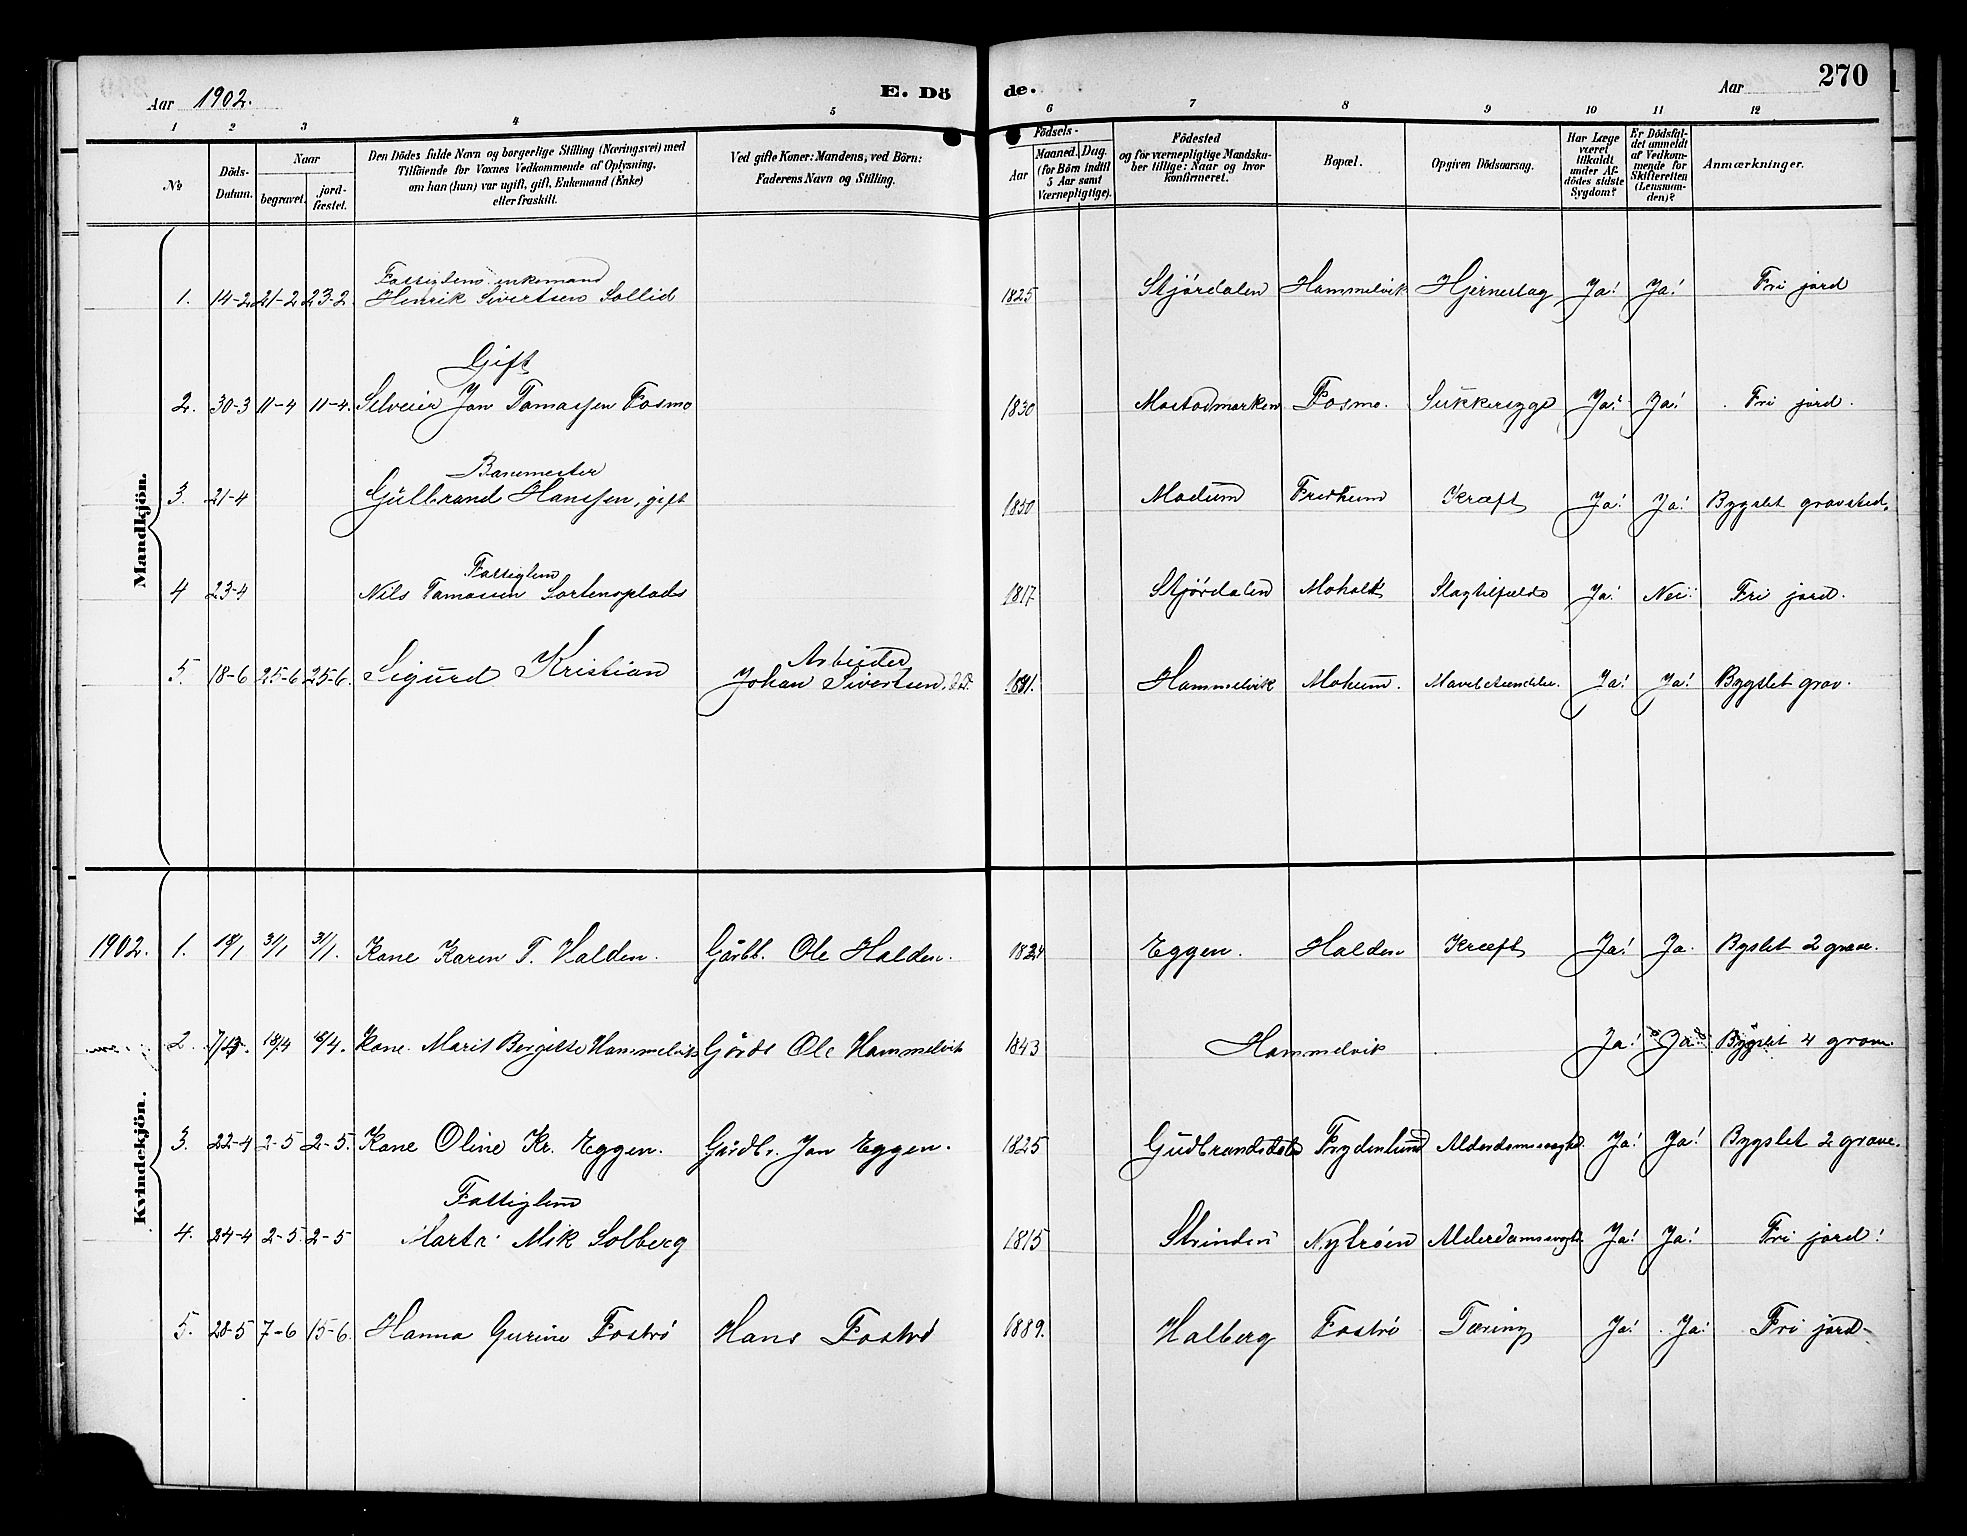 Aar 1902. E. Dö
de. Aar 270
1 2 3 4 5 6 7 8 9 10 11 12
№
Döds-Datum.
Naar
begravet.
jord-fæstet.
Den Dödes fulde Navn og borgerlige Stilling (Næringsvei) med
Tilföiende for Voxnes Vedkommende af Oplysning,
om han (hun) var ugift, gift, Enkemand (Enke)
eller fraskilt.
Ved gifte Koner: Mandens, ved Börn:
Faderens Navn og Stilling.
Födsels-
Aar
Maaned. Dag.
(for Börn indtil
5 Aar samt
Værnepligtige).
Födested
og for værnepligtige Mandska-
ber tillige: Naar og hvor
konfirmeret.
Bopæl.
Opgiven Dödsaarsag.
Har Læge
været
tilkaldt
under Af-
dödes sidste
Sygdom?
Er Dödsfal-
det anmeldt
af Vedkom-
mende for
Skifteretten
(Lensman-
den)?
Anmærkninger.
Mandkjön.
Fattiglem. enkemand
1. 14-2 21-2 23-2 Henrik Sivertsen Sollid 1825 Stjördalen Hammelvik Hjerneslag Ja! Ja! Fri jord
Gift
2. 30-3 11-4 11-4. Selveier Jon Tamassen Fosmo 1830 Mostadmarken Fosmo. Sukkersyge Ja! Ja! Fri jord.
Banemester
3. 21-4 Gulbrand Hanssen, gift 1850 Modum Fredheim Kræft Ja! Ja! Bygslet gravsted.
Fattiglem
4 23-4 Nils Tamassen Sortensplads 1817 Stjördalen Moholt Slagtilfælde Ja! Nei! Fri jord.
Arbeider
5. 18-6 25-6 25-6. Sigurd Kristian Johan Sivertsen, Hammelvik Moheim. Ja! Ja! Bygslet grav.
Kvindekjön.
1902. 1. 18/1 31/1 31/1. Kone Karen T. Halden. Gårbb. Ole Halden. 1824 Eggen. Halden Kræft Ja! Ja. Bygslet 2 grave.
2. 18/4 18/4. Kone Marit Bergitte Hammelvik Gårdb Ole Hammelvik 1843 Hammelvik Ja! Ja! Bygslet 4 grave.
3. 22-4 2-5 2-5. Kone Oline Kr. Eggen. Gårdb. Jon Eggen. 1825 Gudbrandsdalen Frydenlund Alderdomssvaghd. Ja! Ja! Bygslet 2 grave.
Fattiglem
4. 24-4 2-5. 2-5 Marta Mik Solberg 1815 Strinden Nytröen Alderdomssvaghd. Ja! Ja! Fri jord!
5. 28-5 7-6 15-6. Hanna Gurine Foströ Hans Foströ 1889. Halberg Foströ Tæring Ja! Ja! Fri jord.